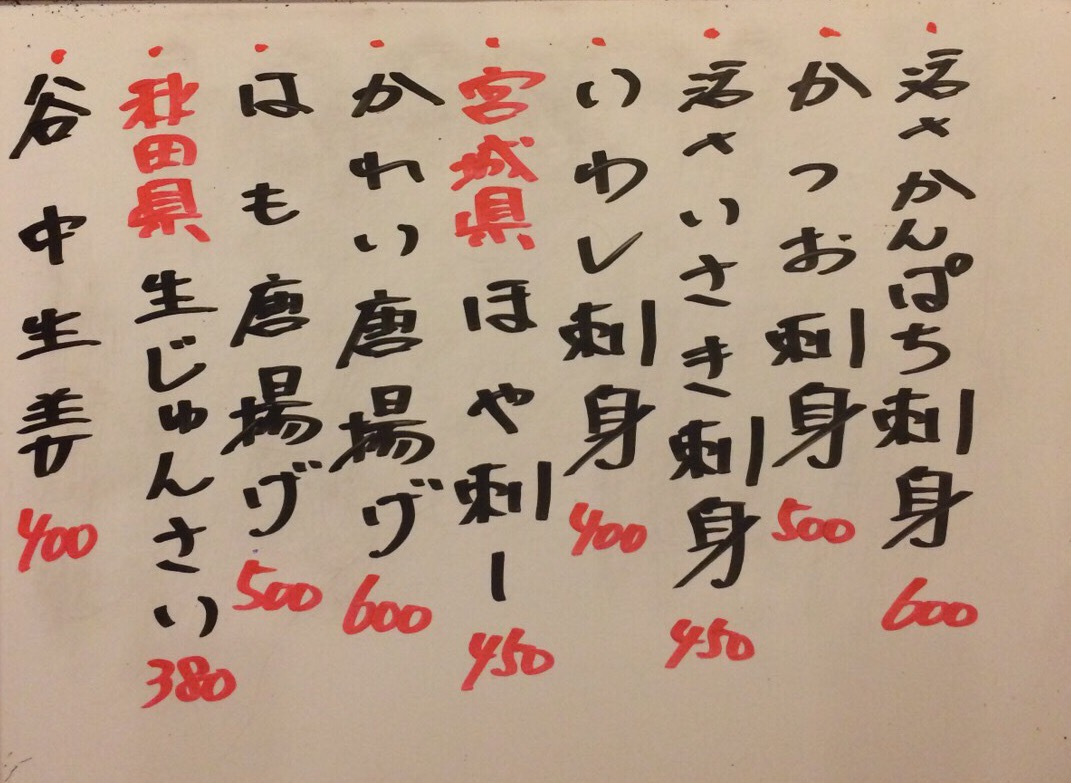 ・活〆かんぱち刺身 600
・かつお刺身 500
・活〆いさき刺身 450
・いわし刺身 400
・宮城県 ほや刺ー 450
・かれい唐揚げ 600
・はも唐揚げ 500
・秋田県 生じゅんさい 380
・谷中生姜 400